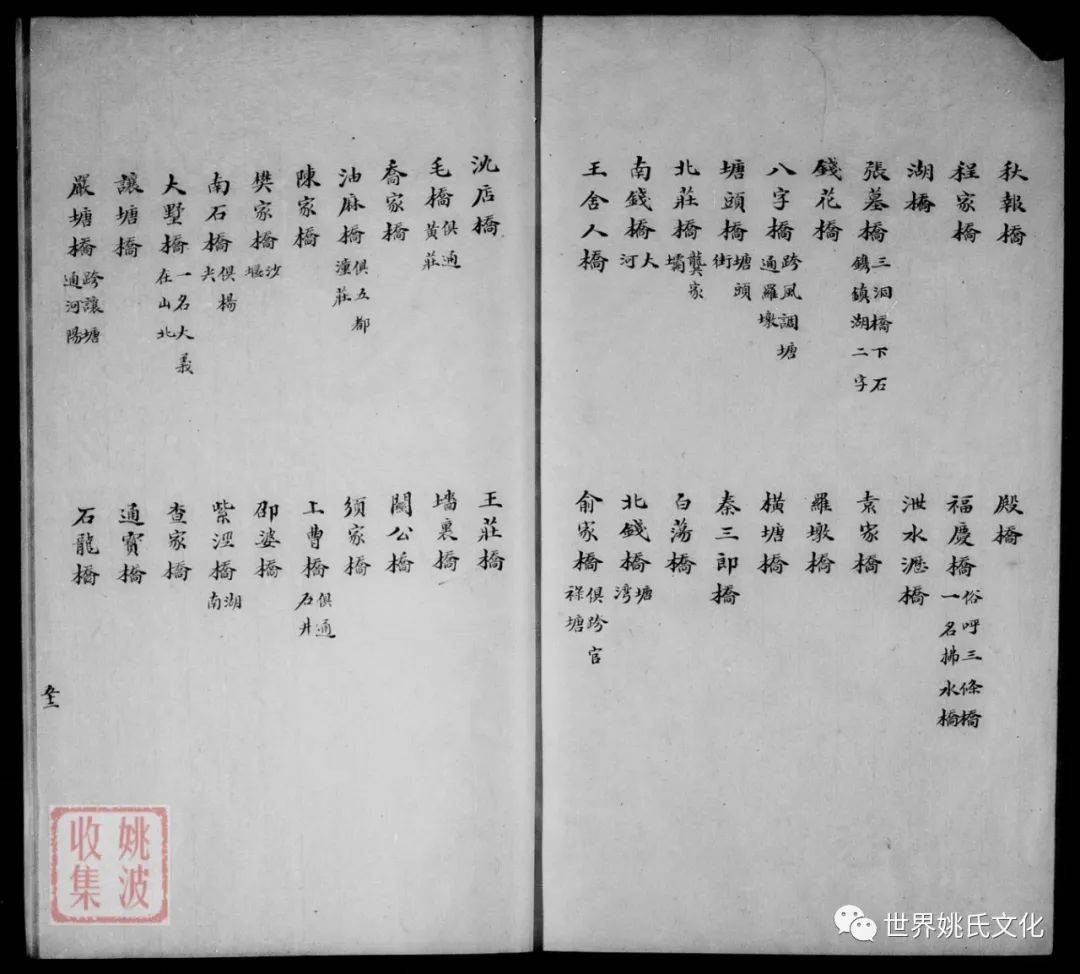 秋報橋 殿橋
程家橋 福慶橋 俗呼三條橋一名拂水橋
湖橋 泄水瀝橋
張墓橋 三洞橋下石鐫鎮湖二字 袁家橋
錢花橋 羅墩橋
八字橋 跨風調塘通羅墩 橫塘橋
塘頭橋 塘頭街 秦三郎橋
北莊橋 龔家壩 白蕩橋
南錢橋 大河 北錢橋 塘灣
王舍人橋 俞家橋 俱跨官祿塘
沈店橋 王莊橋
毛橋 俱通黃莊 墻裏橋
喬家橋 關公橋
油麻橋 俱五都潼莊 須家橋
陳家橋 上曹橋 俱通石井
樊家橋 沙堰 邵婆橋
南石橋 俱楊尖 紫涇橋 湖南
大墅橋 一名大義在山北 查家橋
讓塘橋 通寶橋
嚴塘橋 跨讓塘通河陽 石龍橋
姚波收集
世界姚氏文化